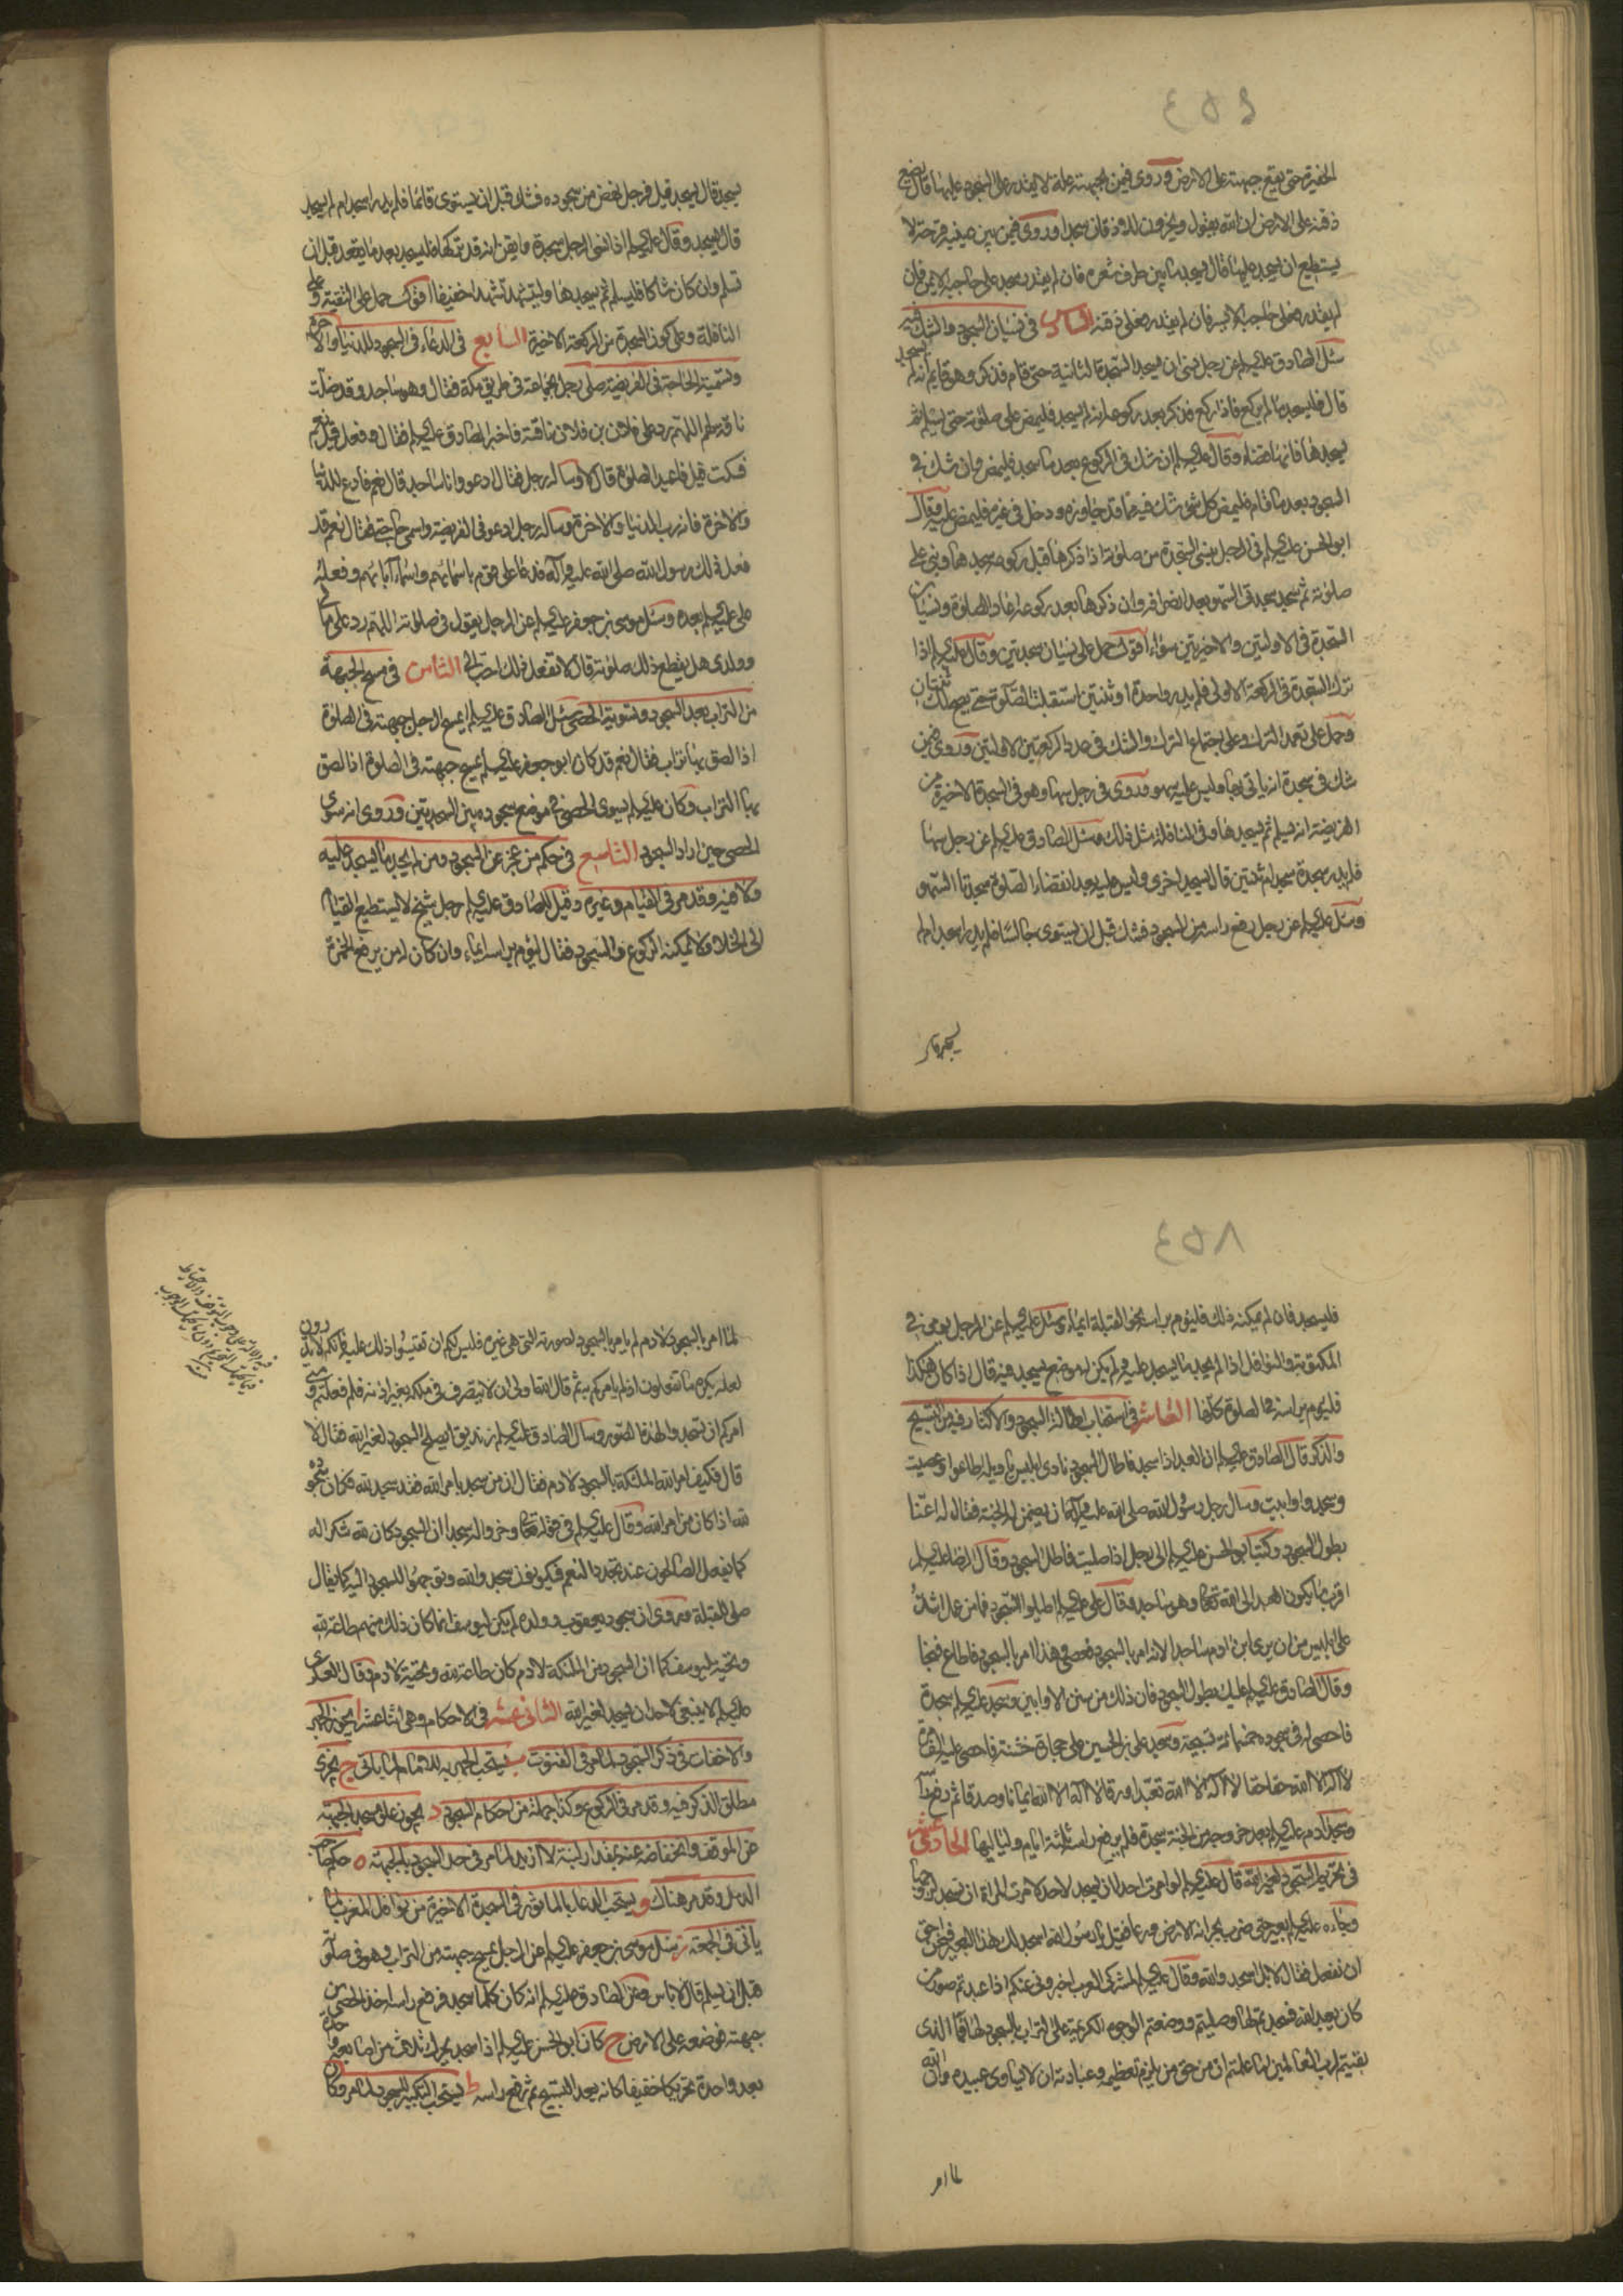 ٤٥٦
الحفيرة حتى يقع جبهته على الارض وروى فيمن بجبهته علة لا يقدر على السجود عليها قال يضع
ذقنه على الارض ان الله يقول ويخرون للاذقان سجدا وروى فيمن بين عينيه قرحة لا
يستطيع ان يسجد عليها قال يسجد ما بين طرف شعره فان لم يقدر سجد على حاجبه الايمن فان
لم يقدر فعلى حاجبه الايسر فان لم يقدر فعلى ذقنه السادس فى نسيان السجود والشك فيه
سئل الصادق عليه السلم عن رجل نسى ان يسجد السجدة الثانية حتى قام فذكر وهو قايم انه لم يسجد
قال فليسجد ما لم يركع فاذا ركع فذكر بعد ركوعه انه لم يسجد فليمض على صلوته حتى يسلم ثم
يسجدها فانها قضاء وقال عليه السلم ان شك فى الركوع بعد ما سجد فليمض وان شك فى
السجود بعد ما قام فليمض كل شئ شك فيه مما قد جاوزه ودخل فى غيره فليمض عليه وقال
ابو الحسن عليه السلم فى الرجل ينسى السجدة من صلوته اذا ذكرها قبل ركوعه سجدها وبنى على
صلوته ثم سجد سجدتى السهو بعد انصرافه وان ذكرها بعد ركوعه اعاد الصلوة ونسيان
السجدة فى الاولتين والاخيرتين سواء اقول حمل على نسيان سجدتين وقال عليه السلم اذا
ترك السجدة فى الركعة الاولى فلم يدر واحدة او ثنتين استقبلت الصلوة حتى يصح لك ثنتان
وحمل على تعمد الترك وعلى اجتماع الترك والشك فى صدد الركعتين الاولتين وروى فيمن
شك فى سجدة انه ياتى بها وليس عليه سهو وروى فى رجل سها وهو فى السجدة الاخيرة من
الفريضة انه يسلم ثم يسجدها وفى النافلة مثل ذلك وسئل الصادق عليه السلم عن رجل سها
فلم يدر سجدة سجد ام ثنتين قال يسجد اخرى وليس عليه بعد انقضاء الصلوة سجدتا السهو
وسئل عليه السلم عن رجل رفع راسه من السجود فشك قبل ان يستوى جالسا فلم يدر اسجد ام لم
يسجد قال
يسجد قال يسجد قيل فرجل نهض من سجوده فشك قبل ان يستوى قائما فلم يدر اسجد ام لم يسجد
قال يسجد وقال عليه السلم اذا نسى الرجل سجدة وايقن انه قد تركها فليسجد بعد ما يقعد قبل ان
يسلم وان كان شاكا فليسلم ثم يسجدها وليتشهد تشهدا خفيفا اقول حمل على التقية وعلى
النافلة وعلى كون السجدة من الركعة الاخيرة السابع فى الدعاء فى السجود للدنيا والاخرة
وتسمية الحاجة فى الفريضة صلى رجل بجماعة فى طريق مكة فقال وهو ساجد وقد ضلت
ناقة لهم اللهم رد على فلان بن فلان ناقته فاخبر الصادق عليه السلم فقال وفعل قيل نعم
فسكت قيل فاعيد الصلوة قال لا وساله رجل فقال ادعو وانا ساجد قال نعم فادع للدنيا
والاخرة فانه رب الدنيا والاخرة وساله رجل ادعو فى الفريضة واسمى حاجتى فقال نعم قد
فعل ذلك رسول الله صلى الله عليه وآله فدعا على قوم باسمائهم واسماء آبائهم وفعله
على عليه السلم بعده وسئل موسى بن جعفر عليه السلم عن الرجل يقول فى صلوته اللهم رد على مالى
وولدى هل يقطع ذلك صلوته قال لا تفعل ذلك احب الى الثامن فى مسح الجبهة
من التراب بعد السجود وتسوية الحصى سئل الصادق عليه السلم ايمسح الرجل جبهته فى الصلوة
اذا لصق بها تراب فقال نعم قد كان ابو جعفر عليه السلم يمسح جبهته فى الصلوة اذا لصق
بها التراب وكان عليه السلم يسوى الحصى فى موضع سجوده بين السجدتين وروى انه سوى
الحصى حين اراد السجود التاسع فى حكم من عجز عن السجود ومن لم يجد ما يسجد عليه
ولا فيه وقد مر فى القيام وغيره وقيل للصادق عليه السلم رجل شيخ لا يستطيع القيام
الى الخلاء ولا يمكنه الركوع والسجود فقال ليؤم براسه ايماء وان كان له من يرفع الخمرة
٤٥٨
فليسجد فان لم يمكنه ذلك فليؤم براسه نحو القبلة ايماء وسئل عليه السلم عن الرجل يومى فى
المكتوبة والنوافل اذا لم يجد ما يسجد عليه ولم يكن له موضع يسجد فيه قال اذا كان هكذا
فليوم براسه فى الصلوة كلها العاشر فى استحباب اطالة السجود والاكثار فيه من التسبيح
والذكر قال الصادق عليه السلم ان العبد اذا سجد فاطال السجود نادى ابليس يا ويله اطاعوا وعصيت
وسجدوا وابيت وسال رجل رسول الله صلى الله عليه وآله ان يضمن له الجنة فقال له اعنا
بطول السجود وكتب ابو الحسن عليه السلم الى رجل اذا صليت فاطل السجود وقال الرضا عليه السلم
اقرب ما يكون العبد الى الله تعالى وهو ساجد وقال على عليه السلم اطيلوا السجود فما من عمل اشد
على ابليس من ان يرى ابن آدم ساجدا لانه امر بالسجود فعصى وهذا امر بالسجود فاطاع فنجا
وقال الصادق عليه السلم عليك بطول السجود فان ذلك من سنن الاوابين وسجد عليه السلم سجدة
فاحصى له فى سجوده خمسمائة تسبيحة وسجد على بن الحسين على حجارة خشنة فاحصى عليه الف مرة
لا اله الا الله حقا حقا لا اله الا الله تعبدا ورقا لا اله الا الله ايمانا وصدقا ثم رفع راسه
وسجد آدم عليه السلم بعد خروجه من الجنة سجدة فلم يرفع راسه ثلثة ايام ولياليها الحادى عشر
فى تحريم السجود لغير الله قال عليه السلم لو امرت احدا ان يسجد لاحد لامرت المراة ان تسجد لزوجها
وجاءه عليه السلم بعير حتى ضرب بجرانه الارض ورغا فقيل يا رسول الله اسجد لك هذا البعير فنحن احق
ان نفعل فقال لا بل اسجدوا لله وقال عليه السلم لمشركى العرب اخبرونى عنكم اذا عبدتم صور من
كان يعبد الله فسجدتم لها وصليتم ووضعتم الوجوه الكريمة على التراب بالسجود لها فما الذى
بقيتم لرب العالمين اما علمتم ان من حق من يلزم تعظيمه وعبادته ان لا يساوى عبيده وان الله
لما امر
لما امر بالسجود لادم لم يامر بالسجود لصورته التى هى غيره فليس لكم ان تقيسوا ذلك عليه فانكم لا تدرون
لعله يكره ما تفعلون اذ لم يامركم به ثم قال الله اولى ان لا يتصرف فى ملكه بغير اذنه فلم فعلتم ومتى
امركم ان تسجدوا لهذه الصور وسال الصادق عليه السلم زنديق ايصلح السجود لغير الله فقال لا
قال فكيف امر الله الملئكة بالسجود لادم فقال ان من سجد بامر الله فقد سجد لله فكان سجوده
لله اذا كان من امر الله وقال عليه السلم فى قوله تعالى وخروا له سجدا ان السجود كان لله شكرا له
كما يفعل الصالحون عند تجدد النعم فيكونون سجدوا لله وتوجهوا للسجود اليه كما يقال
صلى للقبلة وروى ان سجود يعقوب وولده لم يكن ليوسف انما كان ذلك منهم طاعة لله
وتحية ليوسف كما ان السجود من الملئكة لادم كان طاعة لله وتحية لادم وقال العسكرى
عليه السلم لا ينبغى لاحد ان يسجد لغير الله الثانى عشر فى الاحكام وهى اثنا عشر ا يجوز الجهر
والاخفات فى ذكر السجود لما مر فى القنوت ب يستحب الجهر به للامام لما ياتى ج يجزى
مطلق الذكر فيه وقد مر فى الركوع وكذا جملة من احكام السجود د يجوز علو مسجد الجبهة
عن الموقف وانخفاضه عنه بمقدار لبنة لا ازيد لما مر فى حد السجود بالجبهة ه حكم صاحب
الدمل وقد مر هناك و يستحب الدعاء بالماثور فى السجدة الاخيرة من نوافل المغرب لما
ياتى فى الجمعة ز سئل موسى بن جعفر عليه السلم عن الرجل يمسح جبهته من التراب وهو فى صلوته
قبل ان يسلم قال لا باس وعن الصادق عليه السلم انه كان كلما سجد فرفع راسه اخذ الحصى من
جبهته فوضعه على الارض ح كان ابو الحسن عليه السلم اذا سجد يحرك ثلاث من اصابعه واحدة
بعد واحدة تحريكا خفيفا كانه يعد التسبيح ثم رفع راسه ط يستحب التكبير للسجود لما مر وكان